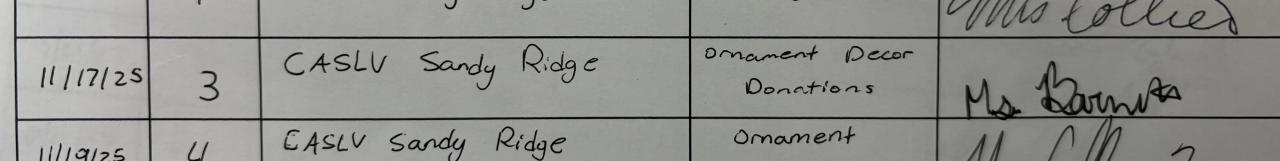 Mrs Collier
11/17/25 3 CASLV Sandy Ridge Ornament Decor Donations Ms. Barnes
11/19/25 4 CASLV Sandy Ridge Ornament